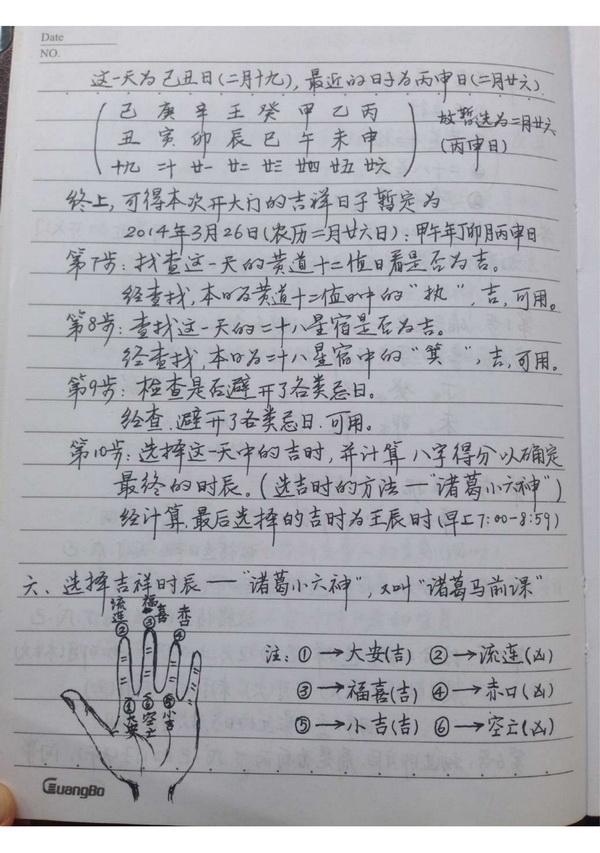 Date
NO.
这一天为己丑日(二月十九),最近的日子为丙申日(二月廿六)
己 庚 辛 壬 癸 甲 乙 丙
丑 寅 卯 辰 巳 午 未 申
十九 二十 廿一 廿二 廿三 廿四 廿五 廿六
故暂选为二月廿六
(丙申日)
终上,可得本次开大门的吉祥日子暂定为
2014年3月26日(农历二月廿六日):甲午年丁卯月丙申日
第7步:找查这一天的黄道十二值日看是否为吉。
经查找,本日为黄道十二值日中的“执”,吉,可用。
第8步:查找这一天的二十八星宿是否为吉。
经查找,本日为二十八星宿中的“箕”,吉,可用。
第9步:检查是否避开了各类忌日。
经查,避开了各类忌日.可用。
第10步:选择这一天中的吉时,并计算八字得分以确定
最终的时辰。(选吉时的方法—“诸葛小六神”)
经计算,最后选择的吉时为壬辰时(早上7:00-8:59)
六、选择吉祥时辰—“诸葛小六神”,又叫“诸葛马前课”
流连② 福喜③ 赤口④
①大安 ⑥空亡 ⑤小吉
注:①→大安(吉) ②→流连(凶)
③→福喜(吉) ④→赤口(凶)
⑤→小吉(吉) ⑥→空亡(凶)
GuangBo